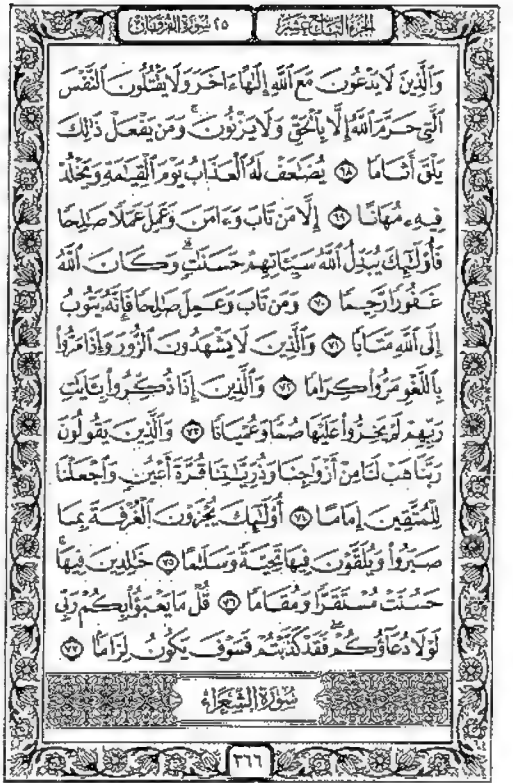 الجزء التاسع عشر
٢٥ سورة الفرقان
وَٱلَّذِينَ لَا يَدْعُونَ مَعَ ٱللَّهِ إِلَٰهًا ءَاخَرَ وَلَا يَقْتُلُونَ ٱلنَّفْسَ
ٱلَّتِى حَرَّمَ ٱللَّهُ إِلَّا بِٱلْحَقِّ وَلَا يَزْنُونَ ۚ وَمَن يَفْعَلْ ذَٰلِكَ
يَلْقَ أَثَامًا ٦٨ يُضَٰعَفْ لَهُ ٱلْعَذَابُ يَوْمَ ٱلْقِيَٰمَةِ وَيَخْلُدْ
فِيهِۦ مُهَانًا ٦٩ إِلَّا مَن تَابَ وَءَامَنَ وَعَمِلَ عَمَلًا صَٰلِحًا
فَأُو۟لَٰٓئِكَ يُبَدِّلُ ٱللَّهُ سَيِّـَٔاتِهِمْ حَسَنَٰتٍ ۗ وَكَانَ ٱللَّهُ
غَفُورًا رَّحِيمًا ٧٠ وَمَن تَابَ وَعَمِلَ صَٰلِحًا فَإِنَّهُۥ يَتُوبُ
إِلَى ٱللَّهِ مَتَابًا ٧١ وَٱلَّذِينَ لَا يَشْهَدُونَ ٱلزُّورَ وَإِذَا مَرُّوا۟
بِٱللَّغْوِ مَرُّوا۟ كِرَامًا ٧٢ وَٱلَّذِينَ إِذَا ذُكِّرُوا۟ بِـَٔايَٰتِ
رَبِّهِمْ لَمْ يَخِرُّوا۟ عَلَيْهَا صُمًّا وَعُمْيَانًا ٧٣ وَٱلَّذِينَ يَقُولُونَ
رَبَّنَا هَبْ لَنَا مِنْ أَزْوَٰجِنَا وَذُرِّيَّٰتِنَا قُرَّةَ أَعْيُنٍ وَٱجْعَلْنَا
لِلْمُتَّقِينَ إِمَامًا ٧٤ أُو۟لَٰٓئِكَ يُجْزَوْنَ ٱلْغُرْفَةَ بِمَا
صَبَرُوا۟ وَيُلَقَّوْنَ فِيهَا تَحِيَّةً وَسَلَٰمًا ٧٥ خَٰلِدِينَ فِيهَا ۚ
حَسُنَتْ مُسْتَقَرًّا وَمُقَامًا ٧٦ قُلْ مَا يَعْبَؤُا۟ بِكُمْ رَبِّى
لَوْلَا دُعَآؤُكُمْ ۖ فَقَدْ كَذَّبْتُمْ فَسَوْفَ يَكُونُ لِزَامًا ٧٧
سُورَةُ الشُّعَرَاءِ
٣٦٦